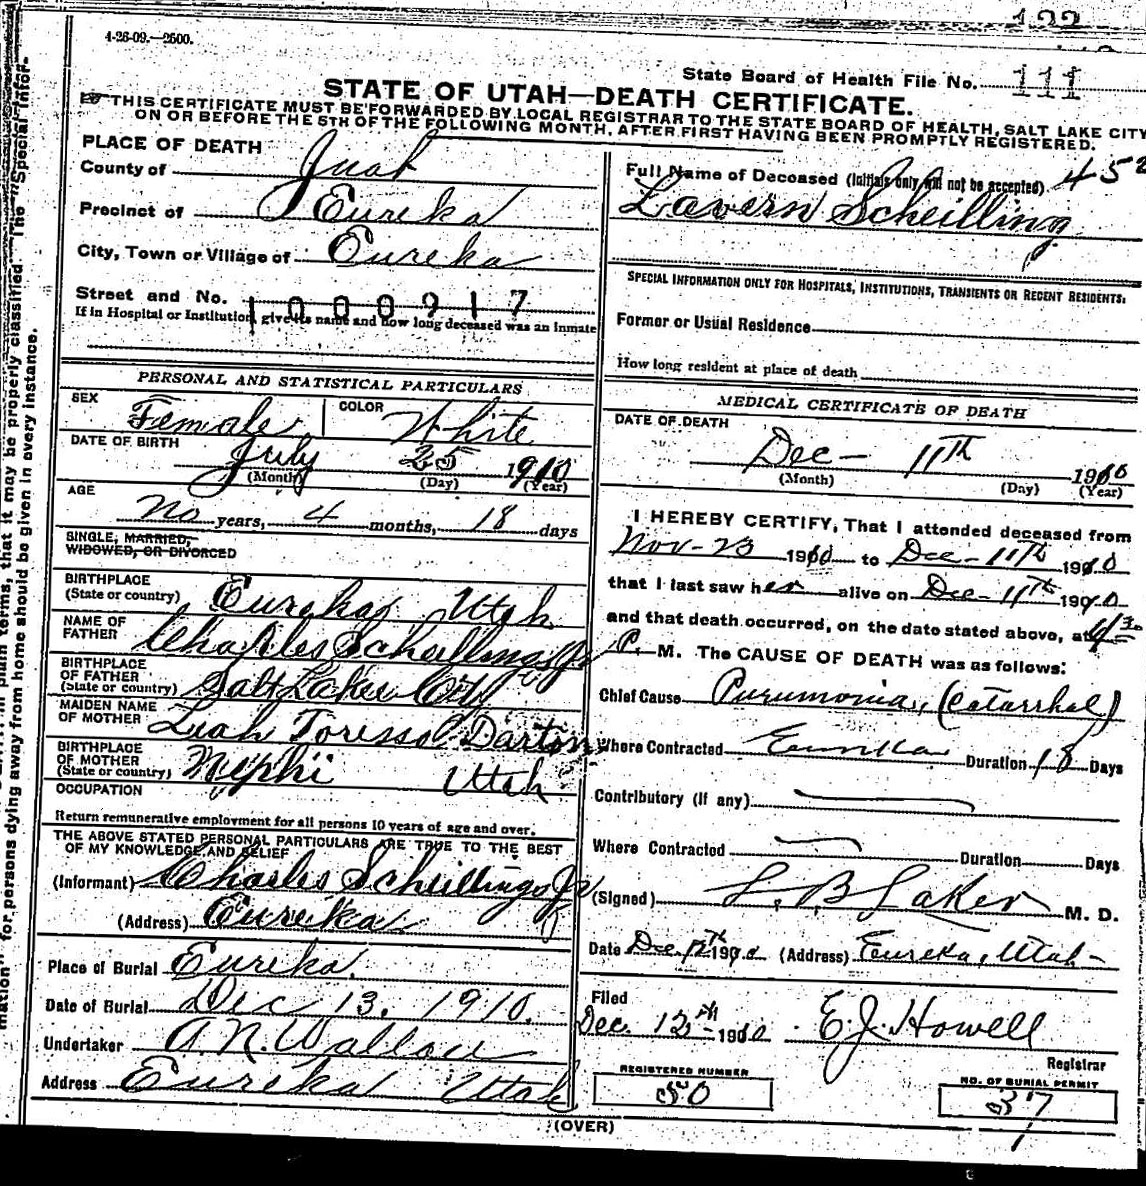 122
4-26-09.—2500.
State Board of Health File No. 111
STATE OF UTAH—DEATH CERTIFICATE.
THIS CERTIFICATE MUST BE FORWARDED BY LOCAL REGISTRAR TO THE STATE BOARD OF HEALTH, SALT LAKE CITY
ON OR BEFORE THE 5TH OF THE FOLLOWING MONTH, AFTER FIRST HAVING BEEN PROMPTLY REGISTERED.
PLACE OF DEATH
County of Juab
Precinct of Eureka
City, Town or Village of Eureka
Street and No.
1000917
If in Hospital or Institution, give its name and how long deceased was an inmate
PERSONAL AND STATISTICAL PARTICULARS
SEX Female COLOR White
DATE OF BIRTH July 25 1910
(Month) (Day) (Year)
AGE
No years, 4 months, 18 days
SINGLE, MARRIED,
WIDOWED, OR DIVORCED
BIRTHPLACE
(State or country) Eureka Utah
NAME OF
FATHER Charles Scheillings Jr
BIRTHPLACE
OF FATHER
(State or country) Salt Lake City
MAIDEN NAME
OF MOTHER Leah Toressd Darton
BIRTHPLACE
OF MOTHER
(State or country) Nephi Utah
OCCUPATION
Return remunerative employment for all persons 10 years of age and over.
THE ABOVE STATED PERSONAL PARTICULARS ARE TRUE TO THE BEST
OF MY KNOWLEDGE AND BELIEF
(Informant) Charles Scheillings Jr
(Address) Eureka
Place of Burial Eureka.
Date of Burial Dec 13. 1910.
Undertaker A. N. Wallace
Address Eureka Utah
Full Name of Deceased (Initials only will not be accepted) 452
Lavern Scheilling
SPECIAL INFORMATION ONLY FOR HOSPITALS, INSTITUTIONS, TRANSIENTS OR RECENT RESIDENTS:
Former or Usual Residence
How long resident at place of death
MEDICAL CERTIFICATE OF DEATH
DATE OF DEATH
Dec— 11th 1910
(Month) (Day) (Year)
I HEREBY CERTIFY, That I attended deceased from
Nov-23 1910 to Dec-11th 1910
that I last saw her alive on Dec-11th 1910
and that death occurred, on the date stated above, at 4 30
P. M. The CAUSE OF DEATH was as follows:
Chief Cause Pneumonia, (Catarrhal)
Where Contracted Eureka Duration 18 Days
Contributory (if any)
Where Contracted Duration Days
(Signed) L. B. Laker M. D.
Date Dec. 12th 1910 (Address) Eureka, Utah-
Filed
Dec. 12th 1910 E. J. Howell
Registrar
REGISTERED NUMBER
50
NO. OF BURIAL PERMIT
37
(OVER)
mation" for persons dying away from home should be given in every instance.
plain terms, that it may be properly classified. The "Special Infor-